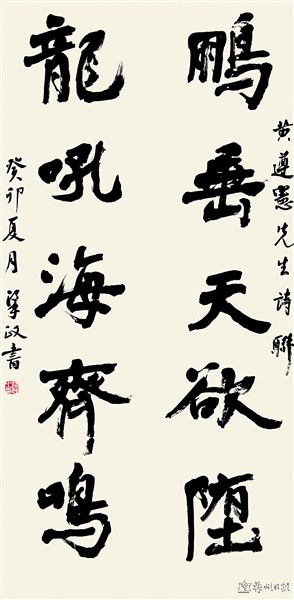 黄遵憲先生詩聯
鵬垂天欲堕
龍吼海齊鳴
癸卯夏月梁政書
梅州日报